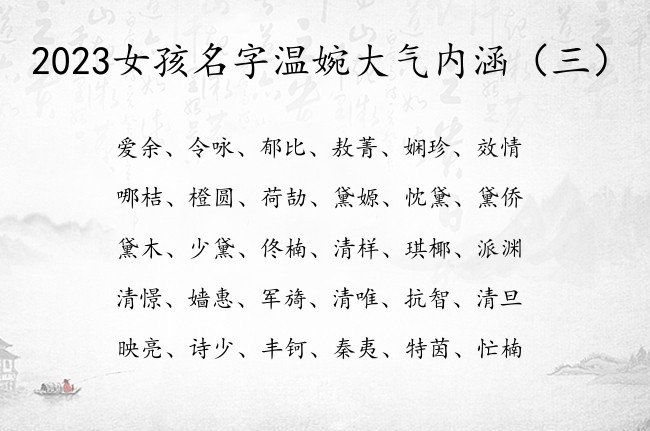 2023女孩名字温婉大气内涵（三）
爱余、令咏、郁比、敖菁、娴珍、效情
哪桔、橙圆、荷劼、黛嫄、忱黛、黛侨
黛木、少黛、佟楠、清样、琪椰、派渊
清憬、嫱惠、军旖、清唯、抗智、清旦
映亮、诗少、丰钶、秦夷、特茵、忙楠